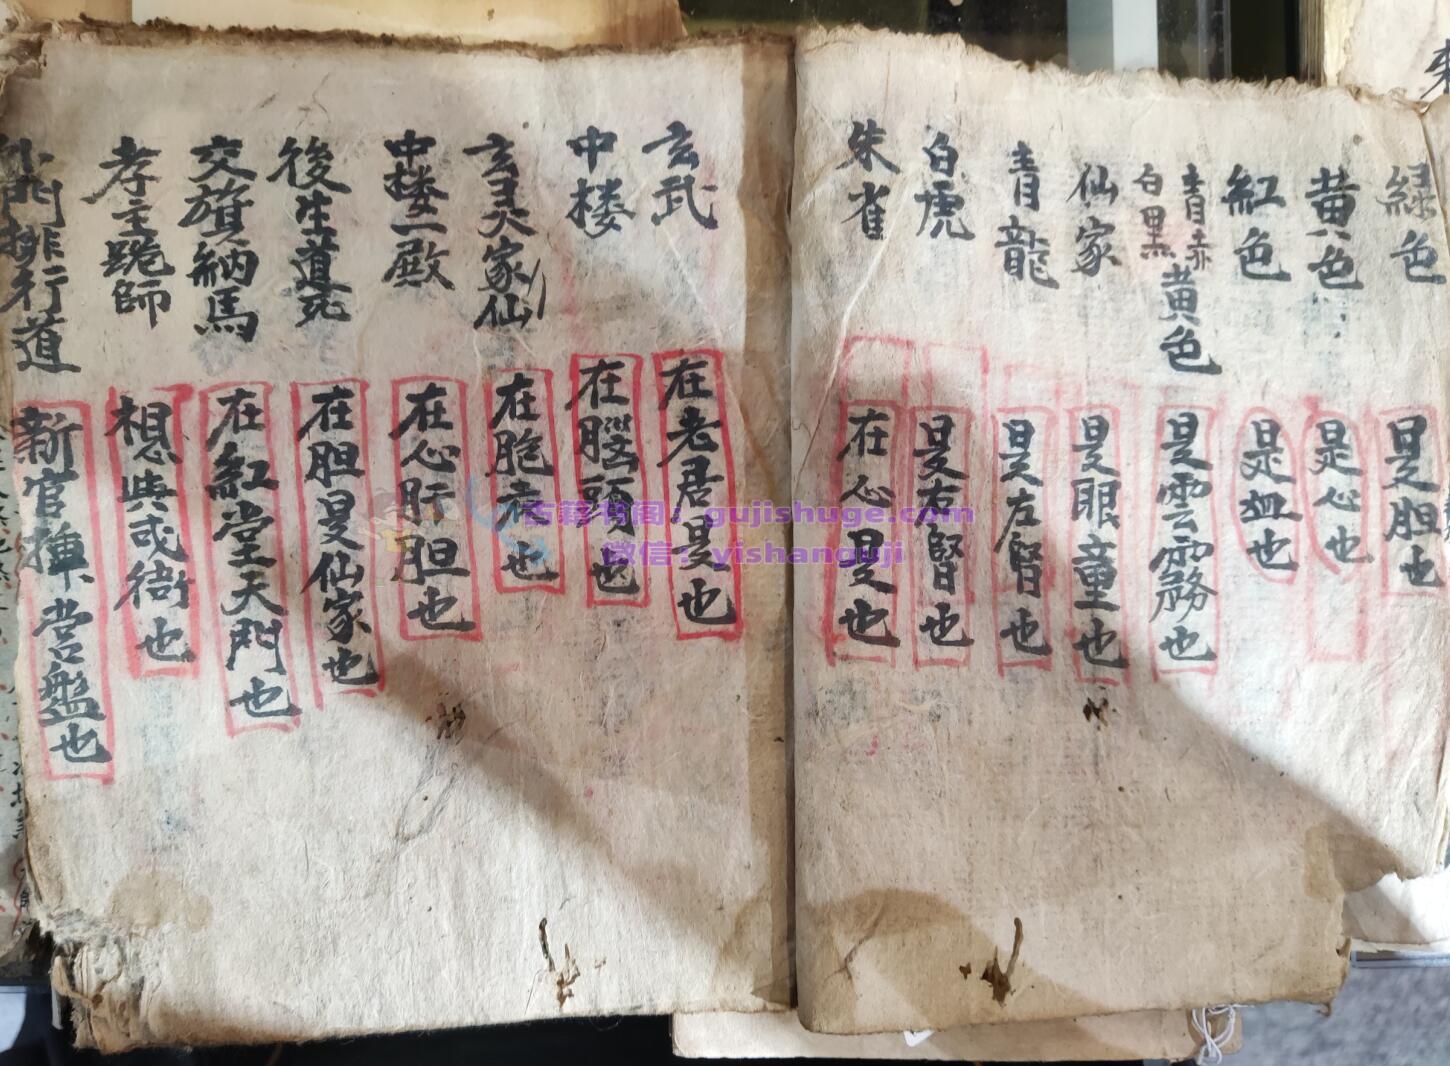 綠色 是胆也
黄色 是心也
紅色 是血也
青赤白黑黄色 是雲霧也
仙家 是眼童也
青龍 是左腎也
白虎 是右腎也
朱雀 在心是也
玄武 在老君是也
中楼 在腦頭也
玄灵家仙 在胞衣也
中楼二殿 在心肝胆也
後生道死 在胆是仙家也
交旗納馬 在紅堂天門也
孝主跪師 想與或街也
排行道 新官揮营盤也
古籍书阁：gujishuge.com
微信：yishanguji